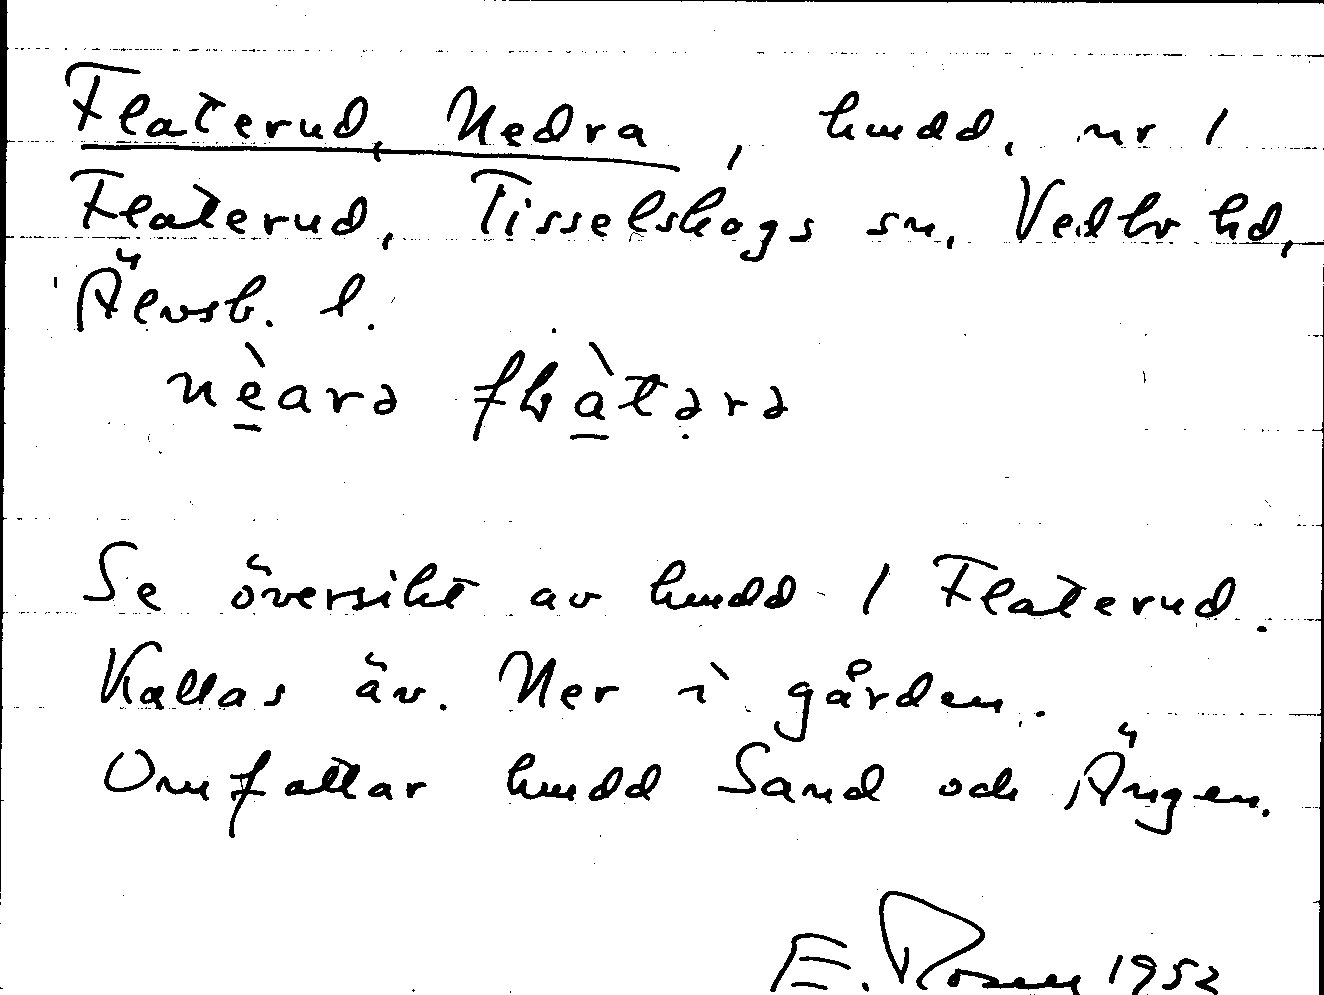 Flaterud, Nedra, hmdd, nr 1
Flaterud, Tisselskogs sn, Vedbo hd,
Älvsb. l.
nèarə flàtərə
Se översikt av hmdd 1 Flaterud.
Kallas äv. Ner i gården.
Omfattar hmdd Sand och Ängen.
E. Rosen 1952